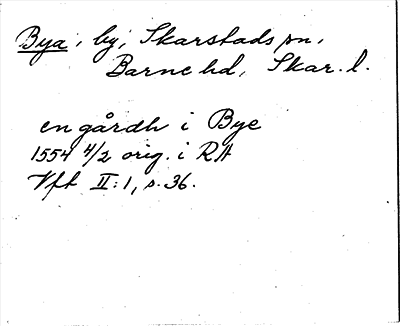 Bya, by, Skarstads sn,
Barne hd, Skar. l.
en gårdh i Bye
1554 4/2 orig. i RA
Vft II:1, s. 36.